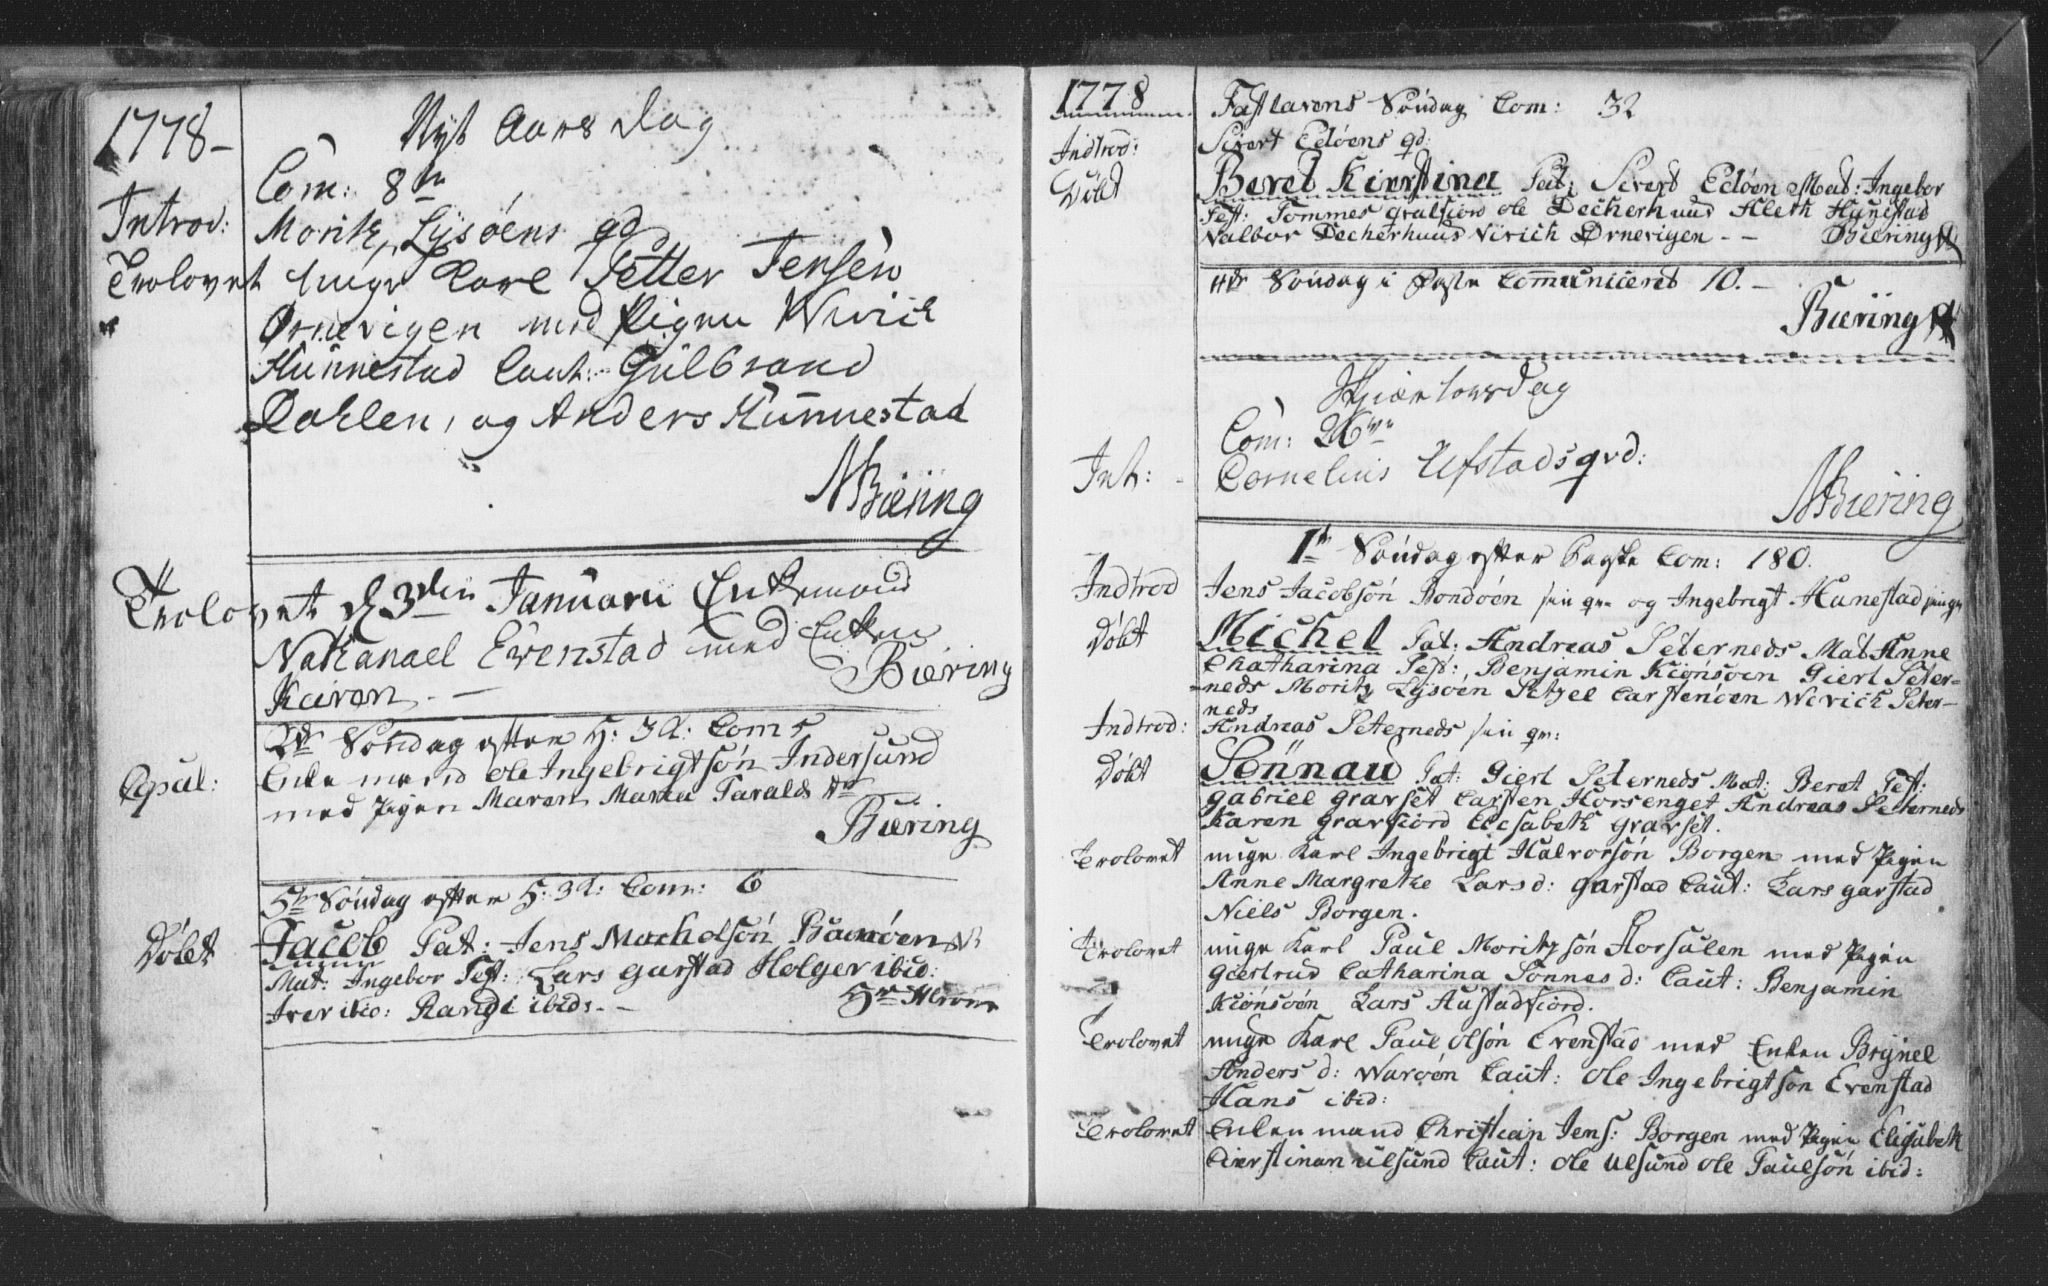 1778-
Nyt Aars Dag
Com: 8te
Introd: Moritz Lysöens qd
Trolovet unge Carl Petter Jensen
Örnevigen med Pigen Wivich
Hunnestad Caut: Gulbrand
Dahlen, og Anders Hunnestad
MBiering
Trolovet d 3die Januarii Enkemand
Nathanael Evenstad med Enken
Karen - — Biering
2de Söndag efter H: 3 K: Com 5
Copul: Enke mand Ole Ingebrigtsön Indersund
med Pigen Maren Maria Taralds dr
Biering
5te Söndag efter H: 3 K: Com: 6
Döbt Jacob Pat: Jens Michelsön Ramöen
Mat: Ingebor Test: Lars Garstad Holger ibid:
Iver ibid: Randi ibid: -
1778 Fastlavens Söndag Com: 32
Indtrod: Sivert Edöens qd:
Döbt Beret Kierstina Pat: Sivert Edöen Mat: Ingebor
Test: Tommes Gralsiord Ole Decherhuus Aleth Hunestad
Valbor Decherhuus Vivich Örnevigen - - Biering
4de Söndag i Faste Comuniceret 10. -
Biering
Skiertorsdag
Com: 26
Int: - Cornelius Ufstads qvd:
MBiering
1te Söndag efter Paaske Com: 180.
Indtrod Jens Jacobsön Bondöen sin qv og Ingebrigt Hunestad sin qv
Döbt Michel Pat: Andreas Peterneds Mat Anne
Chatharina Test: Benjamin Kiönsöen Gierl Peter-
-neds Moritz Lysöen Sitzel Carstenöen Wivich Peter-
neds
Indtrod: Andreas Peterneds sin qv:
Döbt Sönnau Pat: Gierl Peterneds Mat: Beret Test:
Gabriel Gravset Carsten Horsenget Andreas Peterneds
Karen Gravsiord Elesabeth Gravset.
Trolovet unge Karl Ingebrigt Halvorsön Borgen med Pigen
Anne Margrethe Lars d: Garstad Caut: Lars Garstad
Niels Borgen.
Trolovet unge Karl Paul Moritzsön Korsulen med Pigen
Giertrud Catharina Tönnes d: Caut: Benjamin
Kiönsöen Lars Austadfiord.
Trolovet unge Karl Paul Olsön Evenstad med Enken Brynel
Anders d: Waröen Caut: Ole Ingebrigtsön Evenstad
Hans ibid:
Trolovet Enken mand Christian Jens: Borgen med Pigen Elisabeth
Cierstinan ulsund Caut: Ole Ulsund Ole Paulsön ibid: